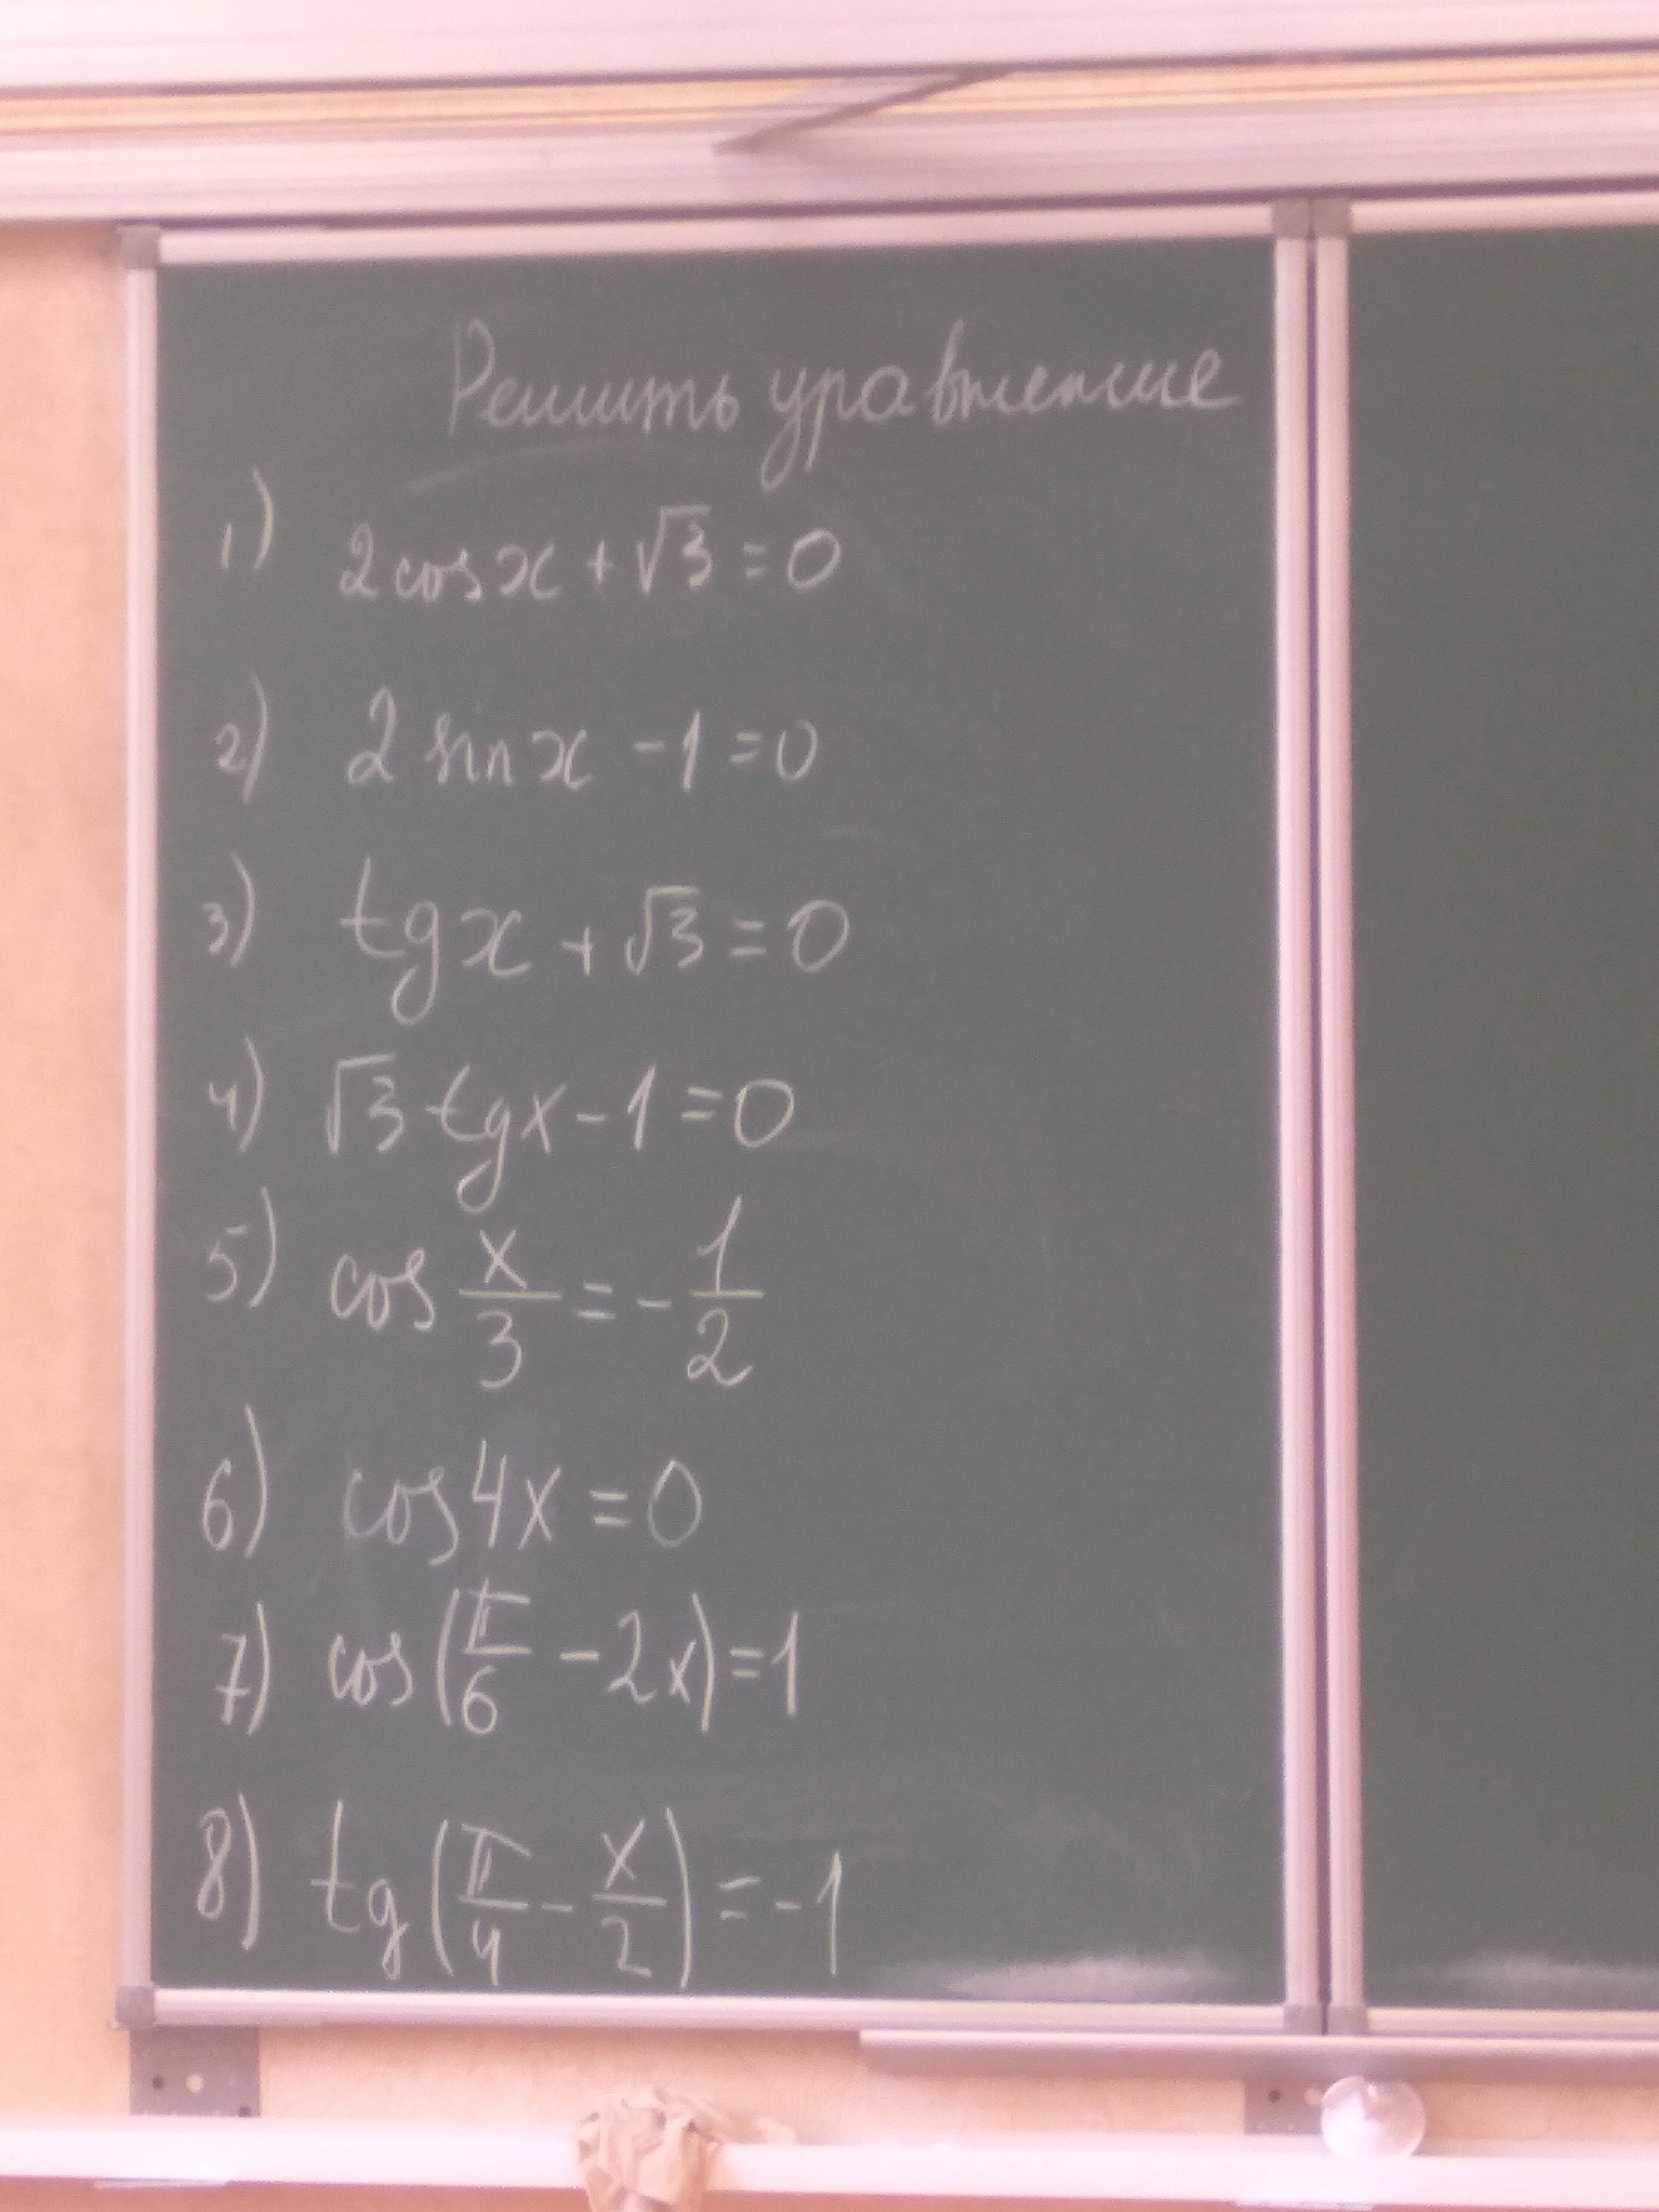 Решить уравнение
1) 2cosx + √3 = 0
2) 2 sinx - 1 = 0
3) tgx + √3 = 0
4) √3 tgx - 1 = 0
5) cos x/3 = - 1/2
6) cos4x = 0
7) cos(π/6 - 2x) = 1
8) tg(π/4 - x/2) = -1